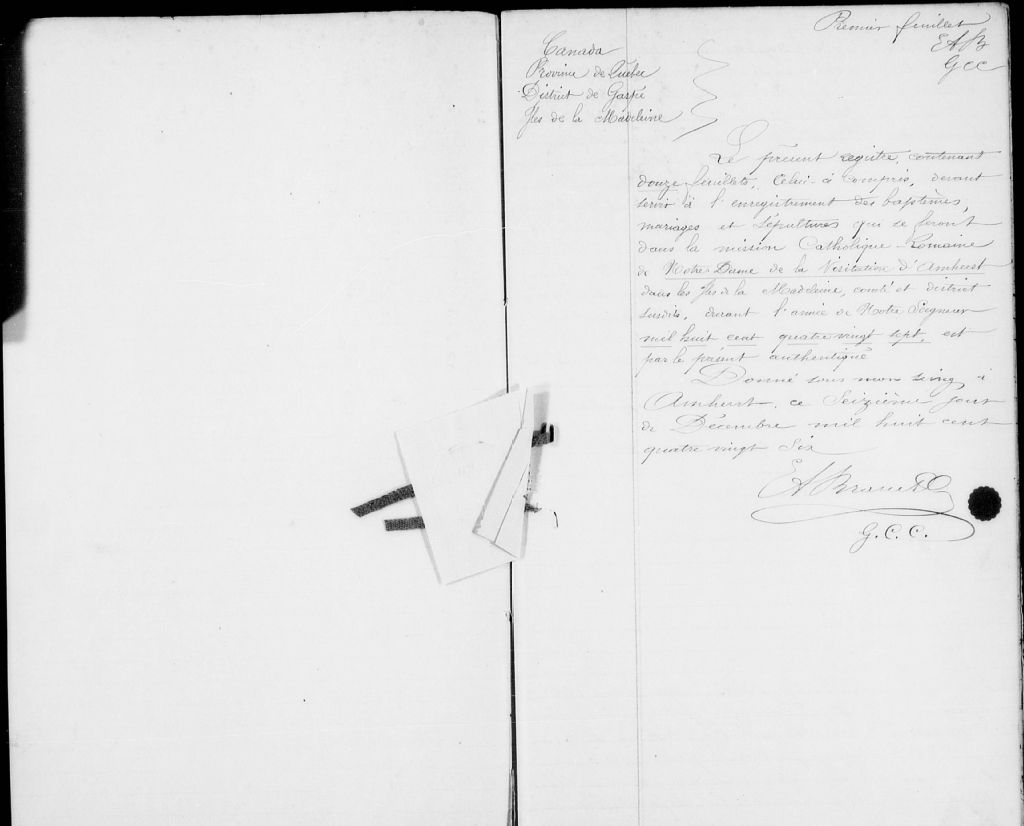 Premier feuillet
EAB
GCC
Canada
Province de Québec
District de Gaspé
Iles de la Madeleine
Le présent registre, contenant
douze feuillets, Celui-ci compris, devant
servir à l'enregistrement des baptêmes,
mariages et Sépultures qui se feront
dans la mission Catholique Romaine
de Notre Dame de la Visitation d'Amherst
dans les Iles de la Madeleine, comté et district
susdits, durant l'année de Notre Seigneur
mil huit cent quatre vingt sept, est
par le présent authentiqué
Donné sous mon seing, à
Amherst, ce Seizième jour
de Décembre mil huit cent
quatre vingt Six
E A
G.C.C.